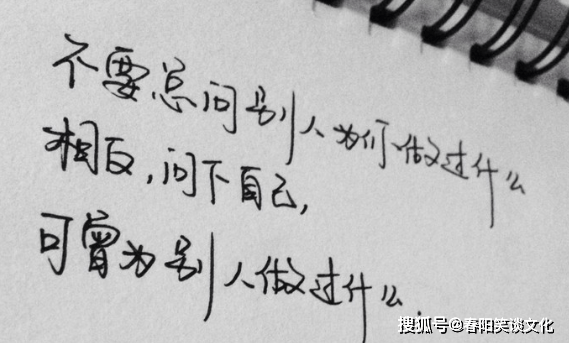 不要总问别人为们做过什么
相反,问下自己,
可曾为别人做过什么.
搜狐号@春阳笑谈文化